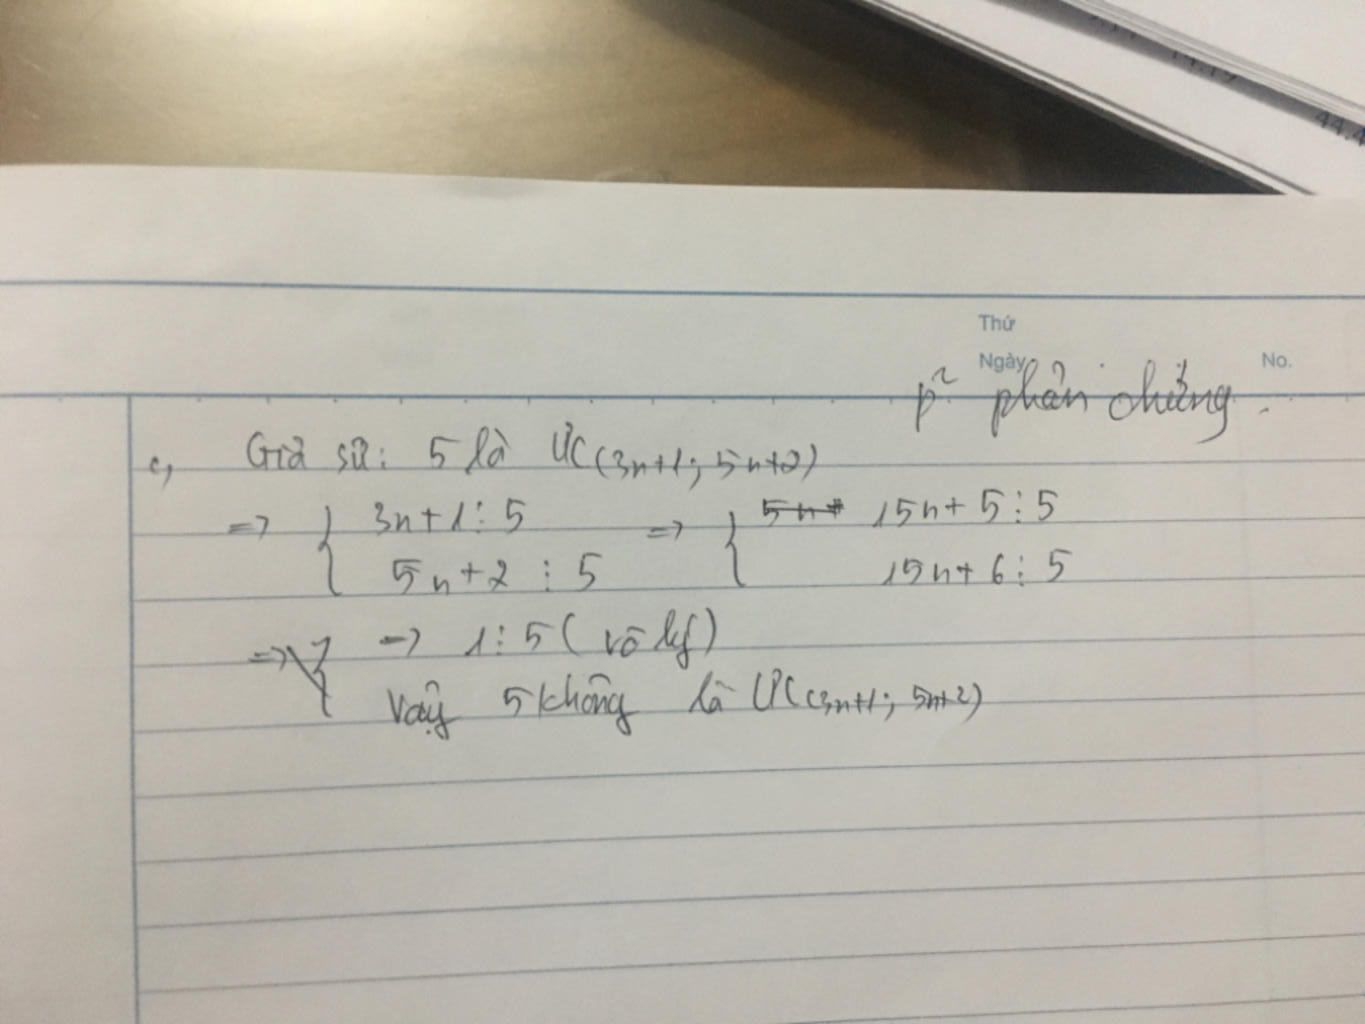 44.4
Thứ
Ngày
No.
p² phản chứng.
c, Giả sử: 5 là ƯC(3n+1; 5n+2)
=> { 3n+1 ⋮ 5 => { 15n+5 ⋮ 5
5n+2 ⋮ 5 15n+6 ⋮ 5
=> 1 ⋮ 5 (vô lý)
Vậy 5 không là ƯC(3n+1; 5n+2)